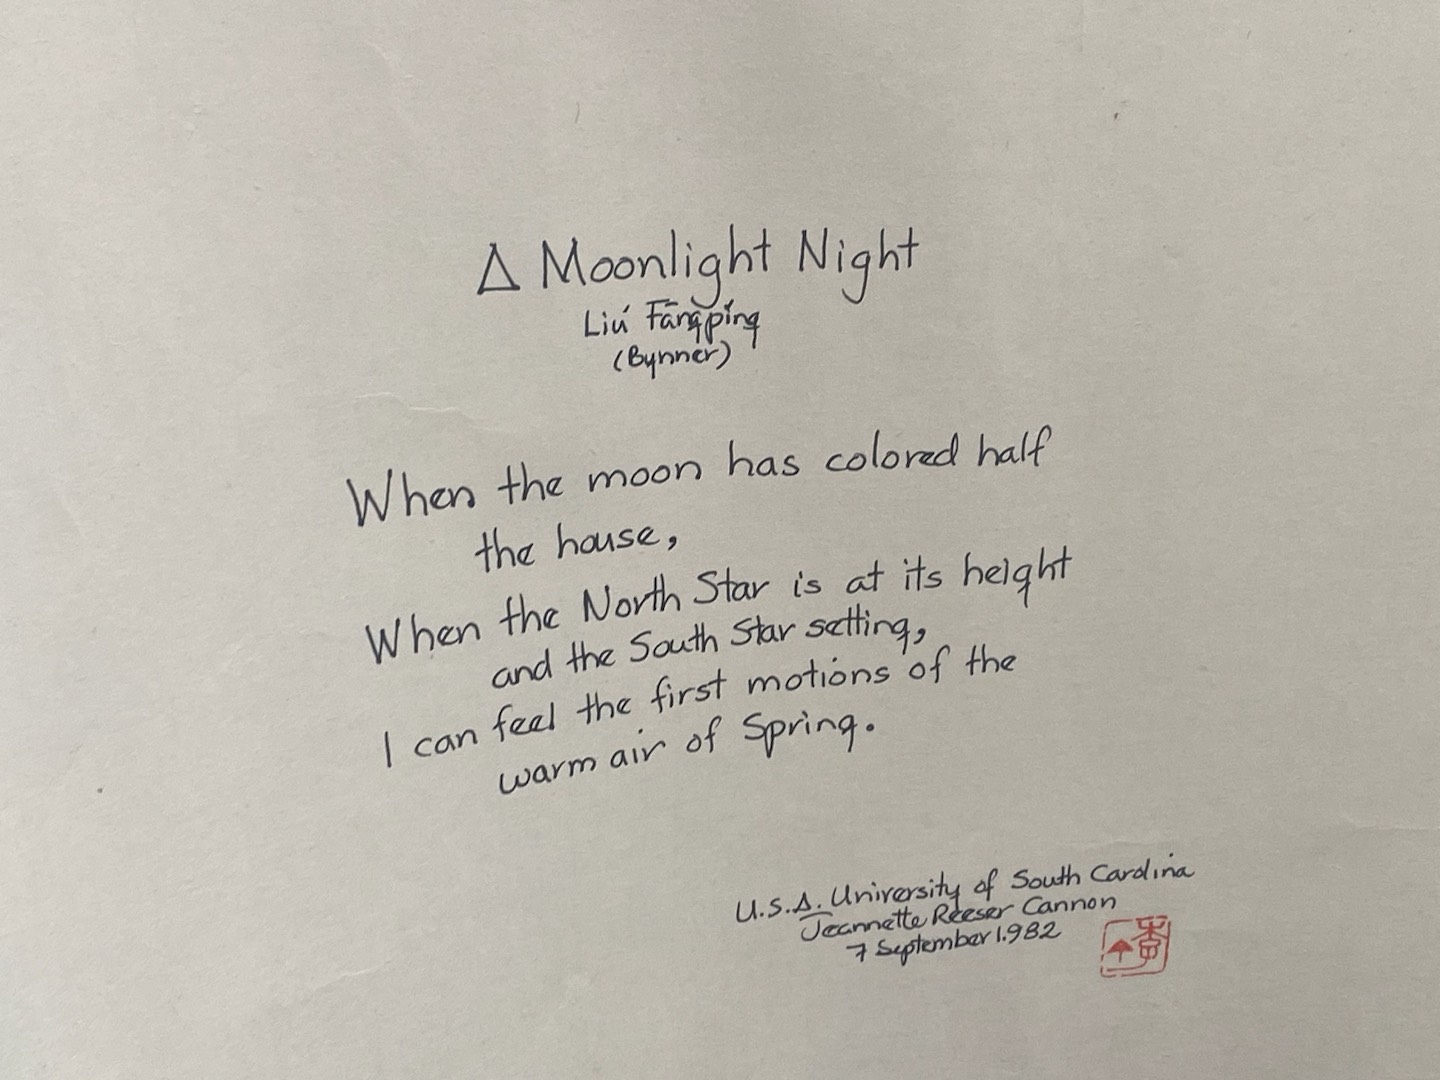 A Moonlight Night
Liú Fāngpíng
(Bynner)
When the moon has colored half
the house,
When the North Star is at its height
and the South Star setting,
I can feel the first motions of the
warm air of Spring.
U.S.A. University of South Carolina
Jeannette Reeser Cannon
7 September 1982